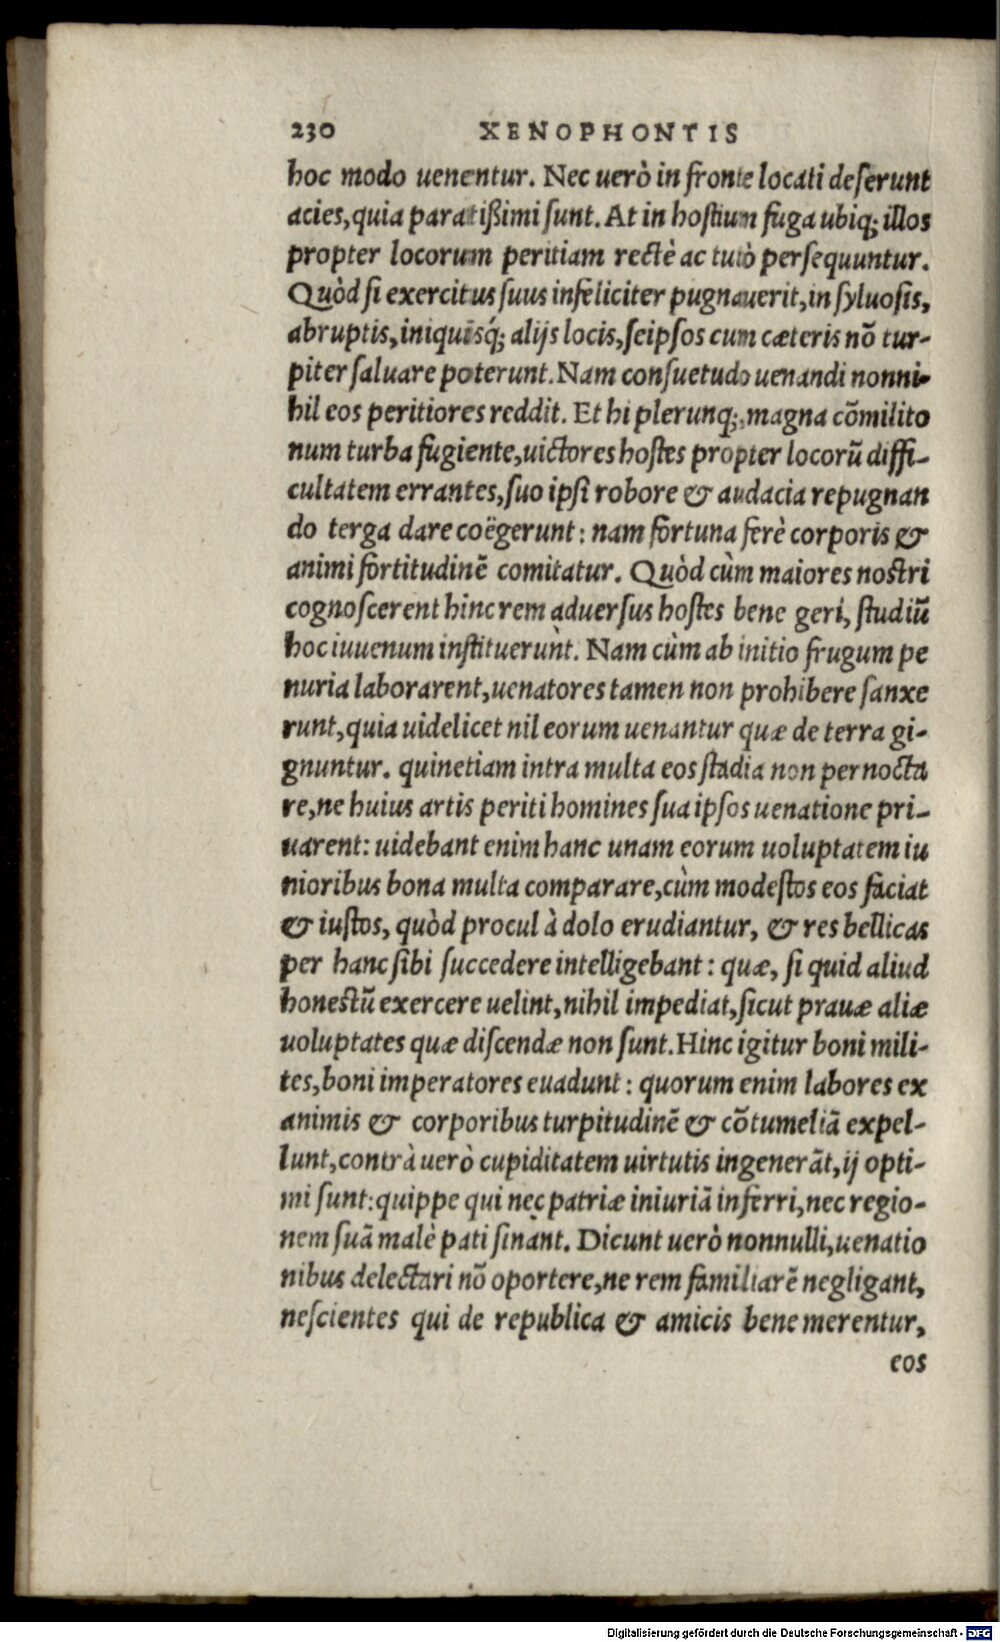 230 XENOPHONTIS
hoc modo uenentur. Nec uerò in fronte locati deserunt
acies, quia paratißimi sunt. At in hostium fuga ubiq; illos
propter locorum peritiam rectè ac tutò persequuntur.
Quòd si exercitus suus infeliciter pugnauerit, in syluosis,
abruptis, iniquisq́; alijs locis, seipsos cum cæteris nõ tur-
piter saluare poterunt. Nam consuetudo uenandi nonni-
hil eos peritiores reddit. Et hi plerunq;, magna cõmilito
num turba fugiente, uictores hostes propter locorũ diffi-
cultatem errantes, suo ipsi robore & audacia repugnan
do terga dare coëgerunt: nam fortuna ferè corporis &
animi fortitudinẽ comitatur. Quòd cùm maiores nostri
cognoscerent hinc rem aduersus hostes bene geri, studiũ
hoc iuuenum instituerunt. Nam cùm ab initio frugum pe
nuria laborarent, uenatores tamen non prohibere sanxe
runt, quia uidelicet nil eorum uenantur quæ de terra gi-
gnuntur. quinetiam intra multa eos stadia non pernocta
re, ne huius artis periti homines sua ipsos uenatione pri-
uarent: uidebant enim hanc unam eorum uoluptatem iu
nioribus bona multa comparare, cùm modestos eos faciat
& iustos, quòd procul à dolo erudiantur, & res bellicas
per hanc sibi succedere intelligebant: quæ, si quid aliud
honestũ exercere uelint, nihil impediat, sicut prauæ aliæ
uoluptates quæ discendæ non sunt. Hinc igitur boni mili-
tes, boni imperatores euadunt: quorum enim labores ex
animis & corporibus turpitudinẽ & cõtumeliã expel-
lunt, contrà uerò cupiditatem uirtutis ingenerãt, ij opti-
mi sunt: quippe qui nec patriæ iniuriã inferri, nec regio-
nem suã malè pati sinant. Dicunt uerò nonnulli, uenatio
nibus delectari nõ oportere, ne rem familiarẽ negligant,
nescientes qui de republica & amicis bene merentur,
eos
Digitalisierung gefördert durch die Deutsche Forschungsgemeinschaft - DFG